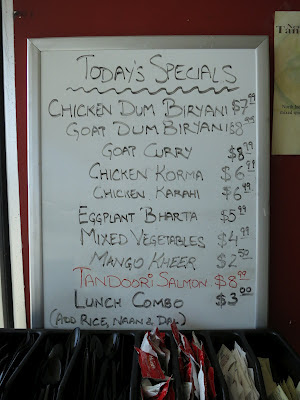 TODAY'S SPECIALS
CHICKEN DUM BIRYANI $7.99
GOAT DUM BIRYANI $8.95
GOAT CURRY $8.99
CHICKEN KORMA $6.99
CHICKEN KARAHI $6.99
EGGPLANT BHARTA $5.99
MIXED VEGETABLES $4.99
MANGO KHEER $2.50
TANDOORI SALMON $8.99
LUNCH COMBO $3.00
(ADD RICE, NAAN & DAL)